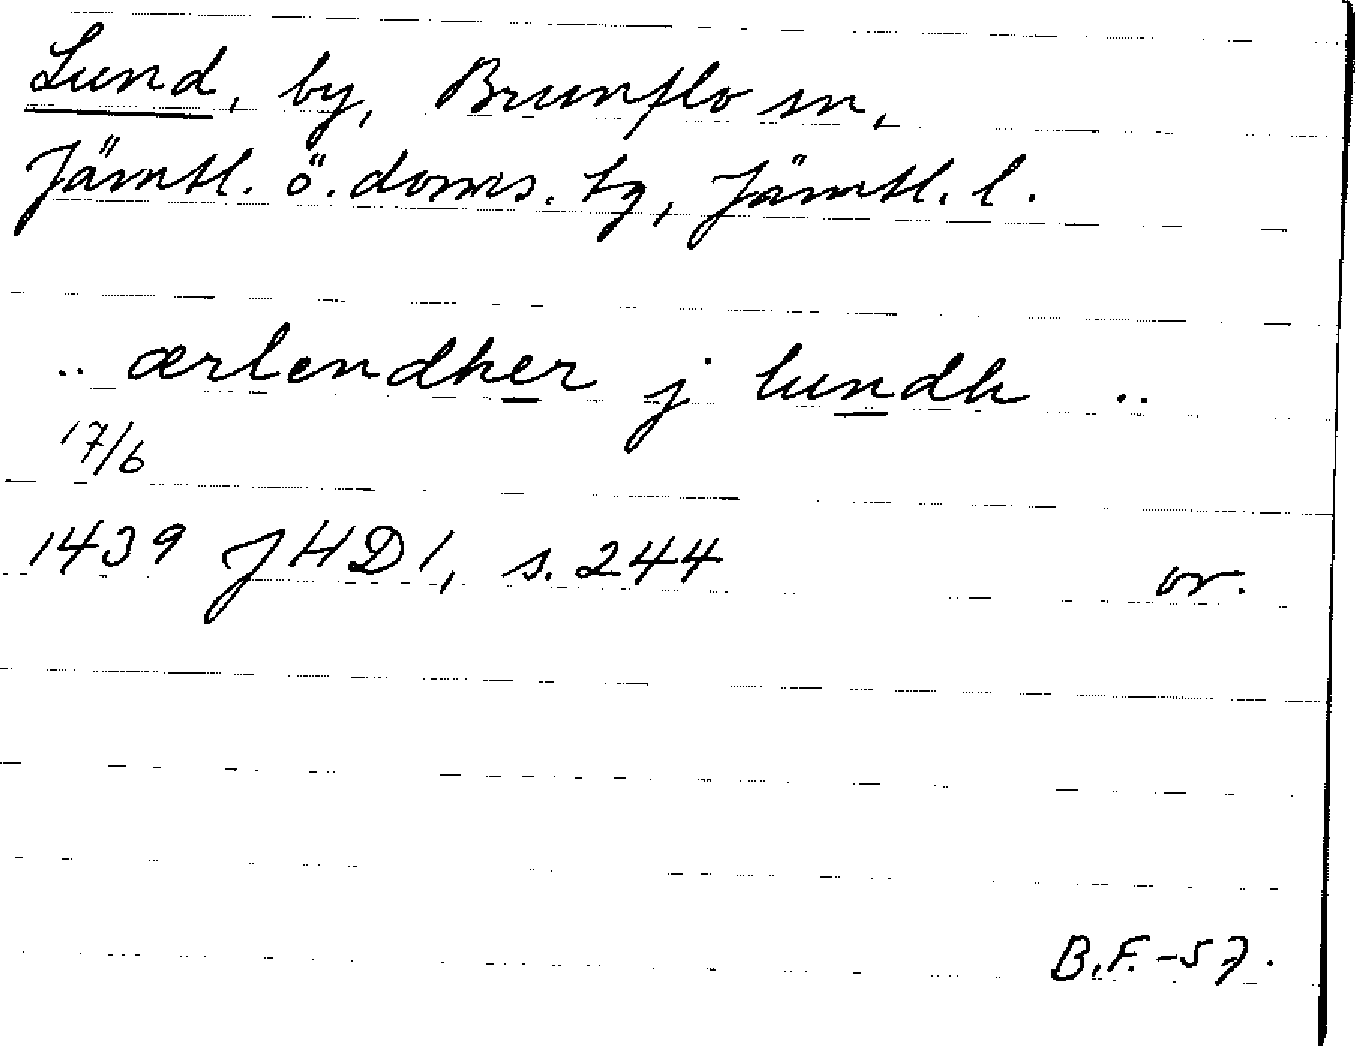 Lund, by, Brunflo sn,
Jämtl. ö. doms. tg, Jämtl. l.
.. ærlendher j lundh ..
17/6
1439 JHD 1, s. 244 or.
B.F. -57.